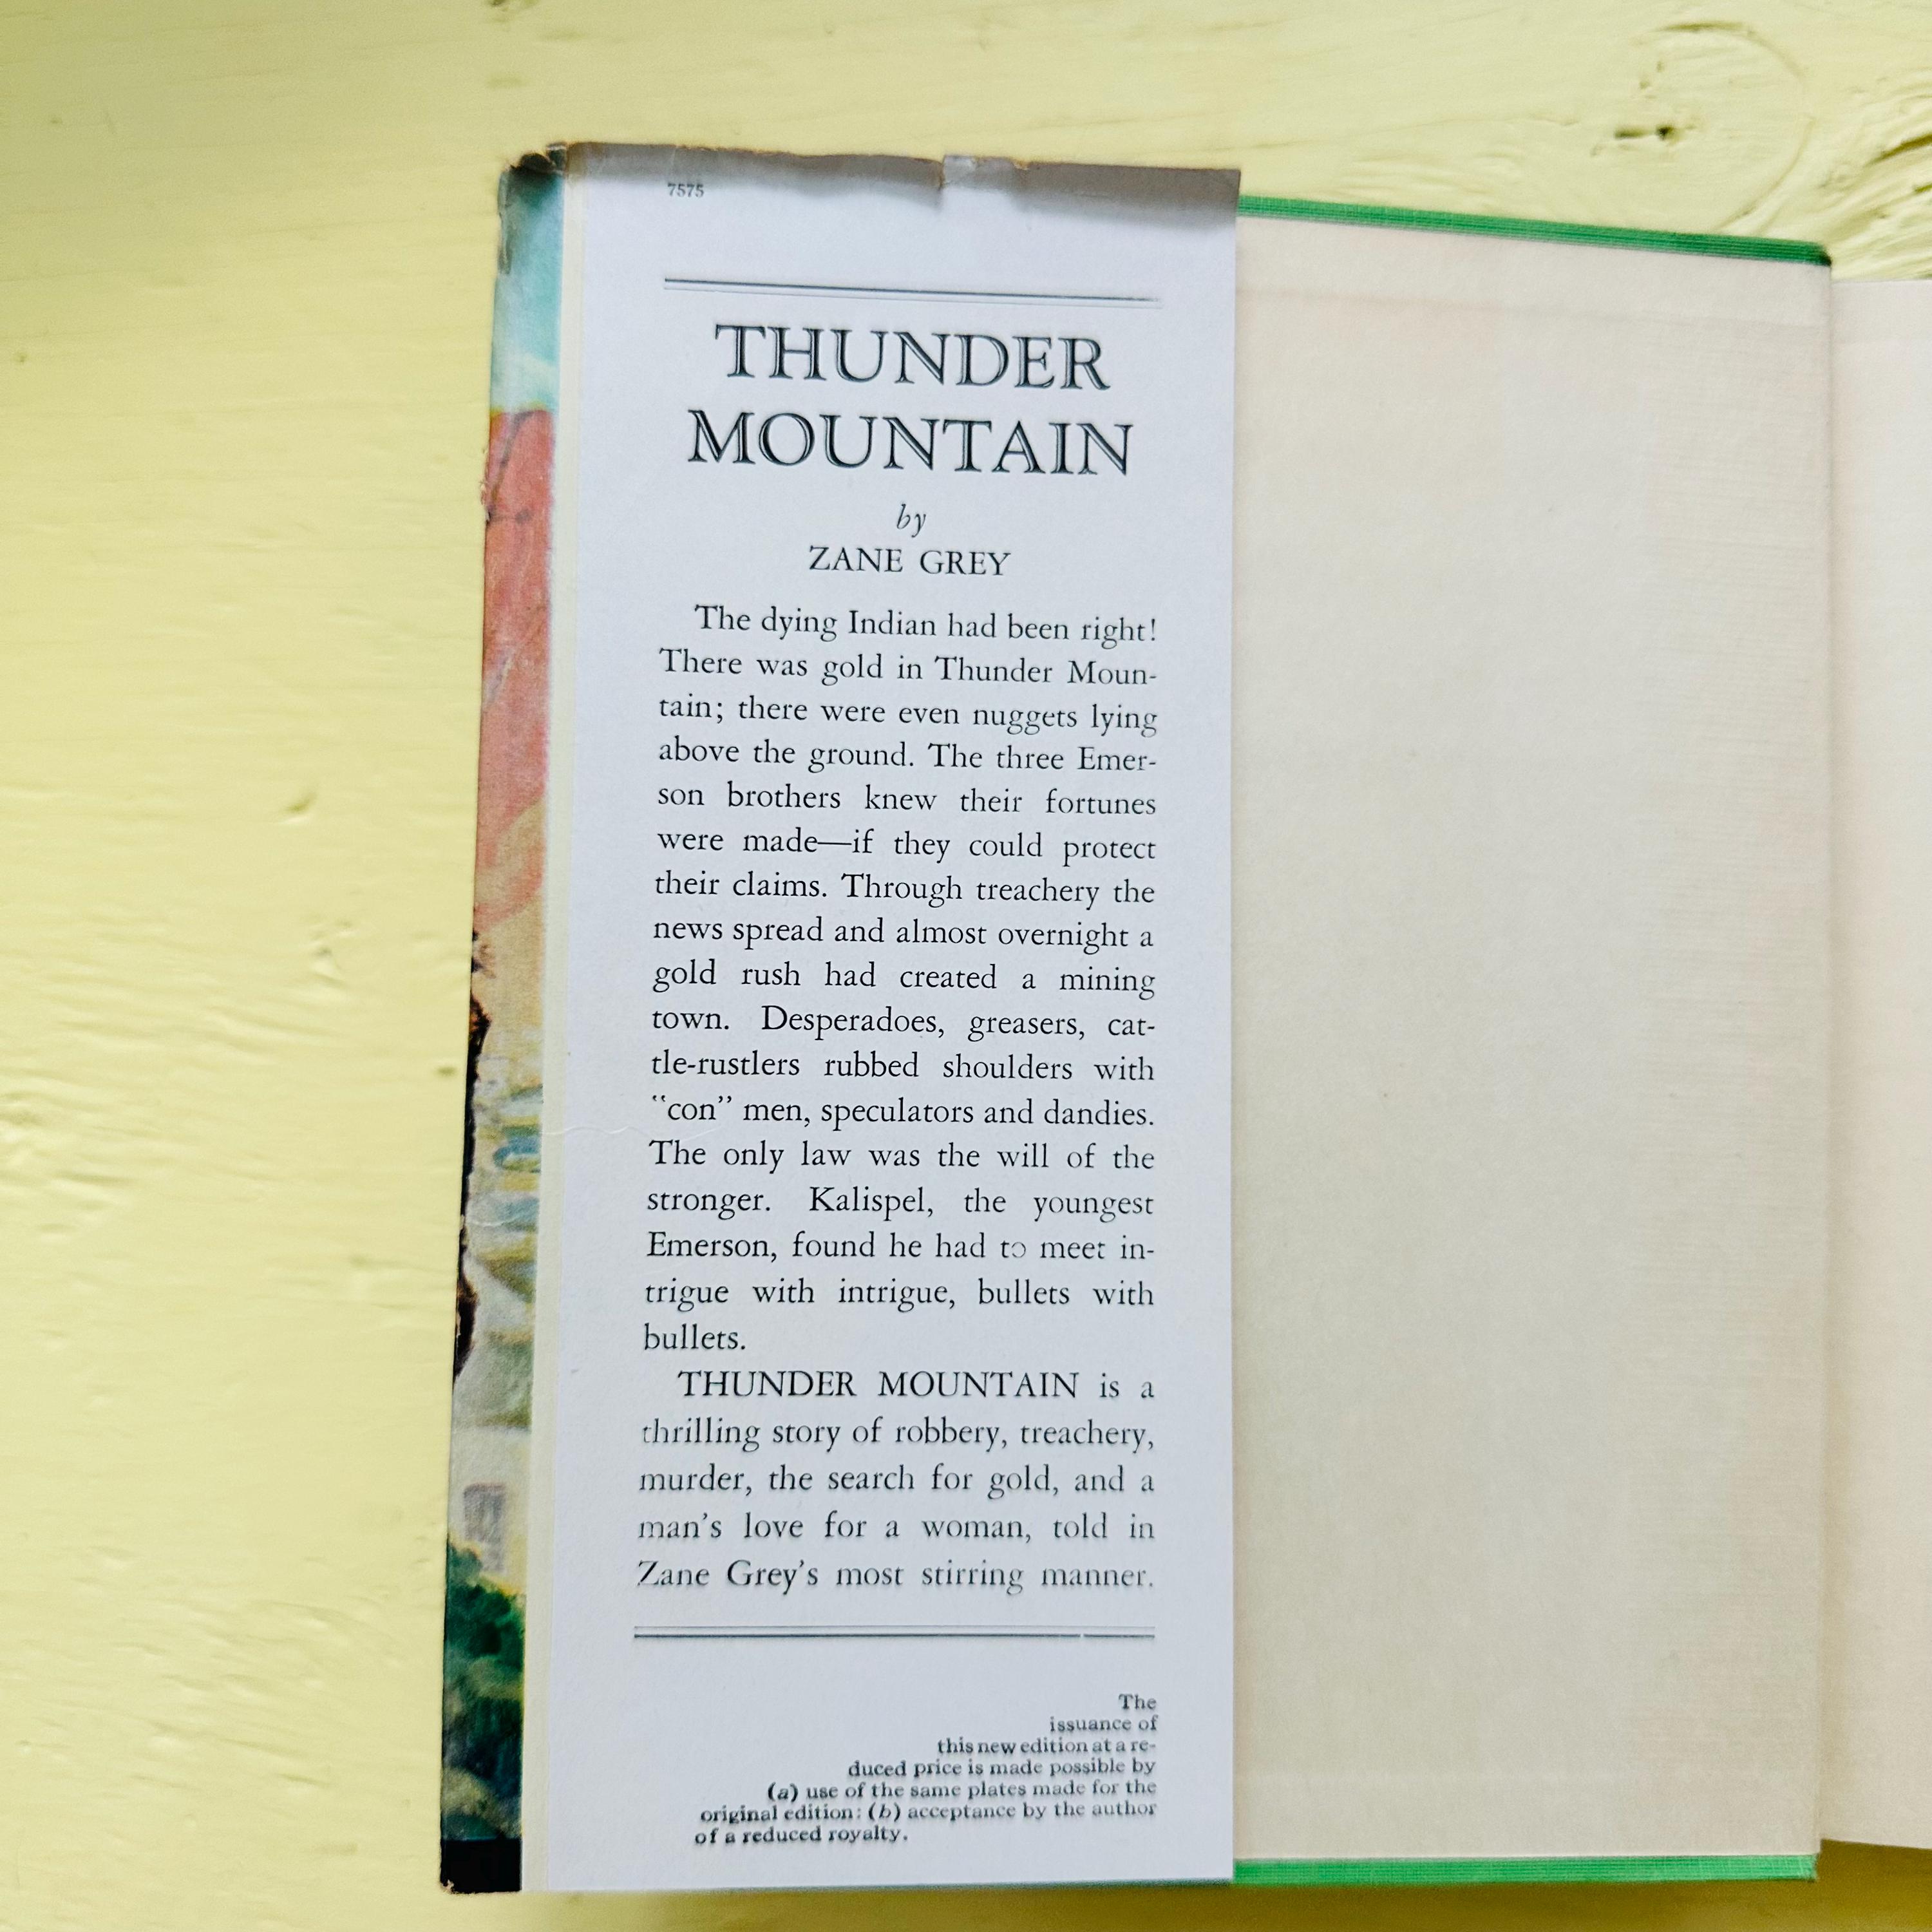 7575
THUNDER
MOUNTAIN
by
ZANE GREY
The dying Indian had been right!
There was gold in Thunder Moun-
tain; there were even nuggets lying
above the ground. The three Emer-
son brothers knew their fortunes
were made—if they could protect
their claims. Through treachery the
news spread and almost overnight a
gold rush had created a mining
town. Desperadoes, greasers, cat-
tle-rustlers rubbed shoulders with
“con” men, speculators and dandies.
The only law was the will of the
stronger. Kalispel, the youngest
Emerson, found he had to meet in-
trigue with intrigue, bullets with
bullets.
THUNDER MOUNTAIN is a
thrilling story of robbery, treachery,
murder, the search for gold, and a
man's love for a woman, told in
Zane Grey's most stirring manner.
The
issuance of
this new edition at a re-
duced price is made possible by
(a) use of the same plates made for the
original edition: (b) acceptance by the author
of a reduced royalty.